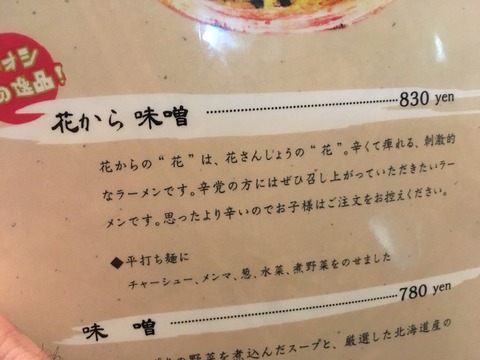 オシ
の逸品！
花から 味噌 830 yen
花からの“花”は、花さんしょうの“花”。辛くて痺れる、刺激的
なラーメンです。辛党の方にはぜひ召し上がっていただきたいラー
メンです。思ったより辛いのでお子様はご注文をお控えください。
◆平打ち麺に
チャーシュー、メンマ、葱、水菜、煮野菜をのせました
味噌 780 yen
の野菜を煮込んだスープと、厳選した北海道産の